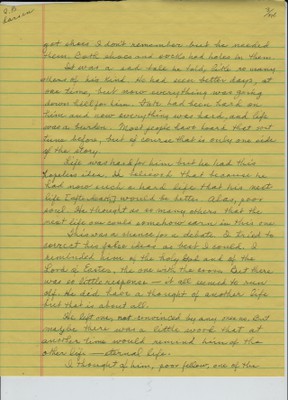 S.B.
Larsen
got shoes I don't remember but he needed
them. Both shoes and socks had holes in them.
It was a sad tale he told, like so many
others of his kind. He had seen better days, at
one time, but now everything was going
down hill for him. Fate had been hard on
him and now everything was hard, and life
was a burden. Most people have heard that out
time before, but of course that is only one side
of the story.
Life was hard for him but he had this
hopeless idea. He believed that because he
had now such a hard life that his next
life would be better. Alas, poor
soul. He thought as so many others that the
next life one could somehow earn in this one
This was a chance for a debate. I tried to
correct his false ideas as best I could. I
reminded him of the holy God and of the
Lord of Easter, the one with the But there
was so little response — it all seemed to run
off. He did have a thought of another life
but that is about all.
He left me, not convinced by any means. But
maybe there was a little word that at
another time would remind him of the
other life — eternal life.
I thought of him, poor fellow, one of the